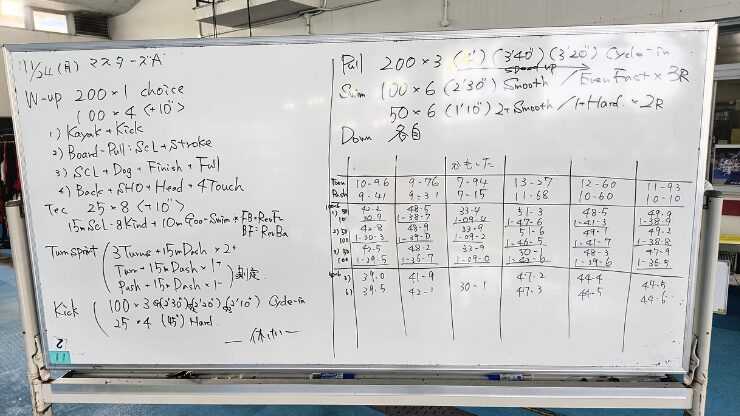 11/24 (月) マスターズA
W-up 200×1 choice
100×4 <+10">
1) Kayak + Kick
2) Board-Pull: SCL + Stroke
3) SCL + Dog + Finish + Full
4) Back + SHO + Head + 4Touch
Tec 25×8 <+10">
15m Scl-8Kind + 10m Goo-Swim * FB=RevFn
BF=RevBa
Turnsprint 3Turns+15mDash × 2+
Turn+15mDash × 1+
Push+15mDash × 1-
測定
Kick 100×3 (2'30") (2'20") (2'10") Cycle-in
25×4 (45") Hard
Pull 200×3 (4') (3'40") (3'20") Cycle-in
Speed up
Swim 100×6 (2'30") Smooth / Even Fast × 3R
50×6 (1'10") 2t Smooth / 1t Hard × 2R
Down 各自
Turn 10-96 9-76 7-94 13-27 12-60 11-93
Push 9-41 9-31 7-15 11-68 10-60 10-10
1) 50 48-5 33-9 51-3 48-5 49-9
100 1-38-7 1-09-0 1-47-6 1-41-3 1-38-9
2) 50 42-8 48-9 33-9 51-6 49-7 49-2
100 1-30-3 1-39-0 1-09-2 1-46-5 1-41-7 1-38-8
50 42-5 48-2 33-9 50-1 48-3 47-9
100 1-29-5 1-36-7 1-09-0 1-39-6 1-36-5
39-0 41-9 30-1 47-2 44-4 44-5
6) 39-5 42-1 47-3 44-5 44-6
2